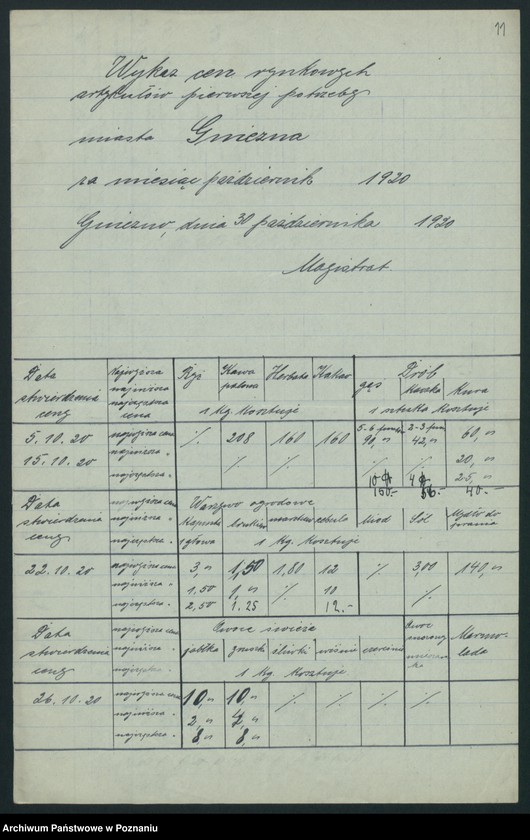 11
Wykaz cen rynkowych
artykułów pierwszej potrzeby
miasta Gniezna
za miesiąc październik 1920
Gniezno, dnia 30 października 1920
Magistrat
Data stwierdzenia ceny
najwyższa najniższa najczęstsza cena
Ryż Kawa palona Herbata Kakao
1 kg. kosztuje
Drób
gęś kaczka kura
1 sztuka kosztuje
5.10.20
15.10.20
najwyższa cena % 208 160 160 90,- 42,- 60,-
najniższa " % % % % 20,-
najczęstsza " 150.- 56.- 25,- 40.-
Data stwierdzenia ceny
najwyższa cena
najniższa "
najczęstsza "
Warzywo ogodowe
kapusta marchew cebula Miod Sól Mydło do prania
1 głowa 1 kg. kosztuje
22.10.20
najwyższa cena 3,- 1,50 1,80 12 % 3,00 140,-
najniższa " 1,50 1,- % 10 %
najczęstsza " 2,50 1.25 12.-
Data stwierdzenia ceny
najwyższa cena
najniższa "
najczęstsza "
Owoce świeże
jabłka gruszki śliwki wiśnie czereśnie
1 kg kosztuje
Marmolada
26.10.20
najwyższa cena 10,- 10,- % % % %
najniższa " 2,- 4,-
najczęstsza " 8,- 8,-
Archiwum Państwowe w Poznaniu